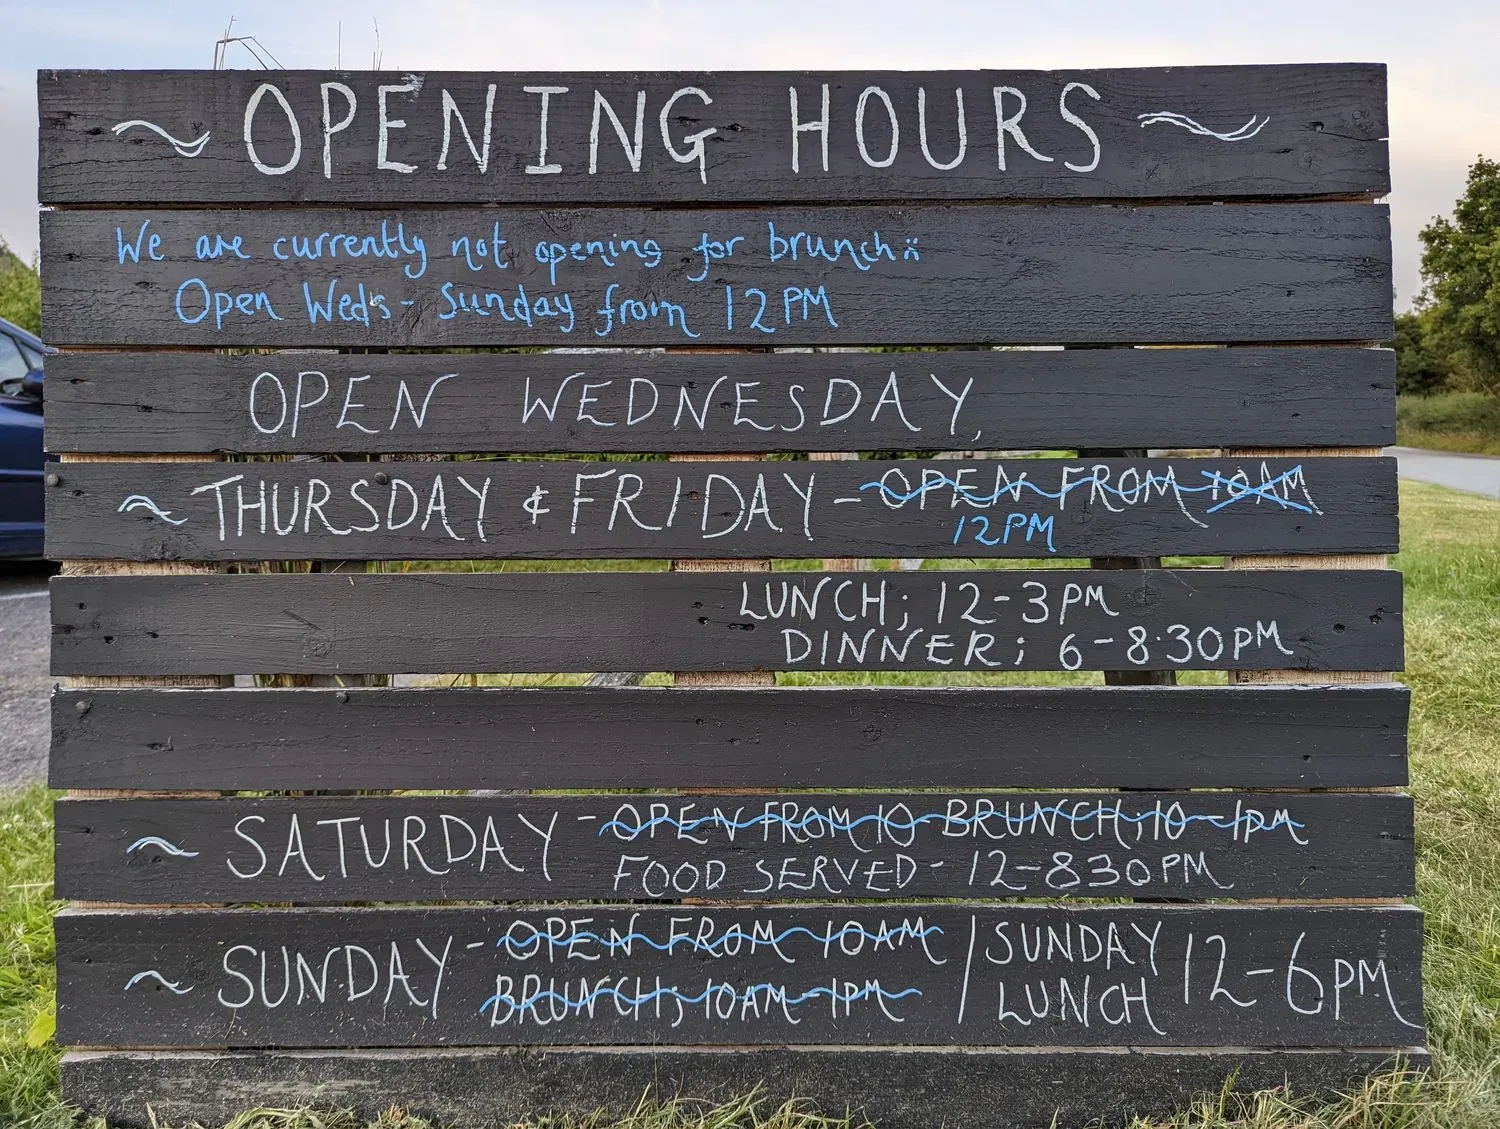 ~ OPENING HOURS ~
We are currently not opening for brunch
Open Weds - Sunday from 12PM
OPEN WEDNESDAY,
~ THURSDAY & FRIDAY - OPEN FROM 10AM
12PM
LUNCH; 12-3PM
DINNER; 6-8.30PM
~ SATURDAY - OPEN FROM 10 BRUNCH; 10-1PM
FOOD SERVED - 12-830PM
~ SUNDAY - OPEN FROM 10AM
BRUNCH; 10AM-1PM
/ SUNDAY
LUNCH
12-6PM